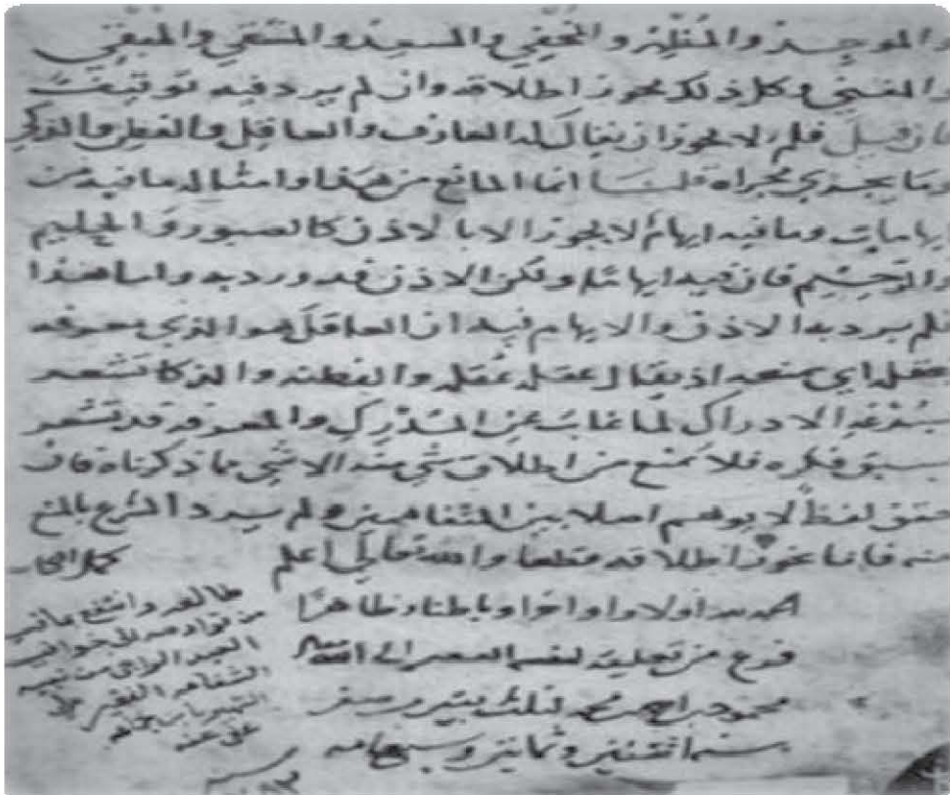 والموجد والمظهر والمخفي والمسعد والمشقي والمبقي
والمفني وكل ذلك يجوز اطلاقه وان لم يرد فيه توقيف
فان قيل فلم لا يجوز ان يقال له العارف والعاقل والفطن والذكي
وما يجري مجراه قلنا انما المانع من هذا وامثاله ما فيه من
ايهامات وما فيه ايهام لا يجوز الا بالاذن كالصبور والحليم
والرحيم فان فيه ايهاما ولكن الاذن قد ورد به واما هذا
فلم يرد به الاذن والايهام فيه ان العاقل هو الذي معرفه
تعقله اي تمنعه اذ يقال عقله عقله والفطنه والذكا تشعر
بسرعه الادراك لما غاب عن المدرك والمعرفه قد تشعر
بسبق فكره فلا يمنع من اطلاق شي منه الا شي مما ذكرناه فان
حقق لفظ لا يوهم اصلا بين المتفاهمين ولم يرد الشرع بالمنع
منه فانا نجوز اطلاقه قطعا والله تعالى اعلم
الحمد لله اولا واخرا وباطنا وظاهرا
فرغ من تعليقه لنفسه الفقير الى الله
محمود بن احمد بن محمد لثلث بقين من صفر
سنه اثنتين وثمانين وسبعمايه
طالعه وانتفع
العبد الراجي من
الفقير
عفي عنه